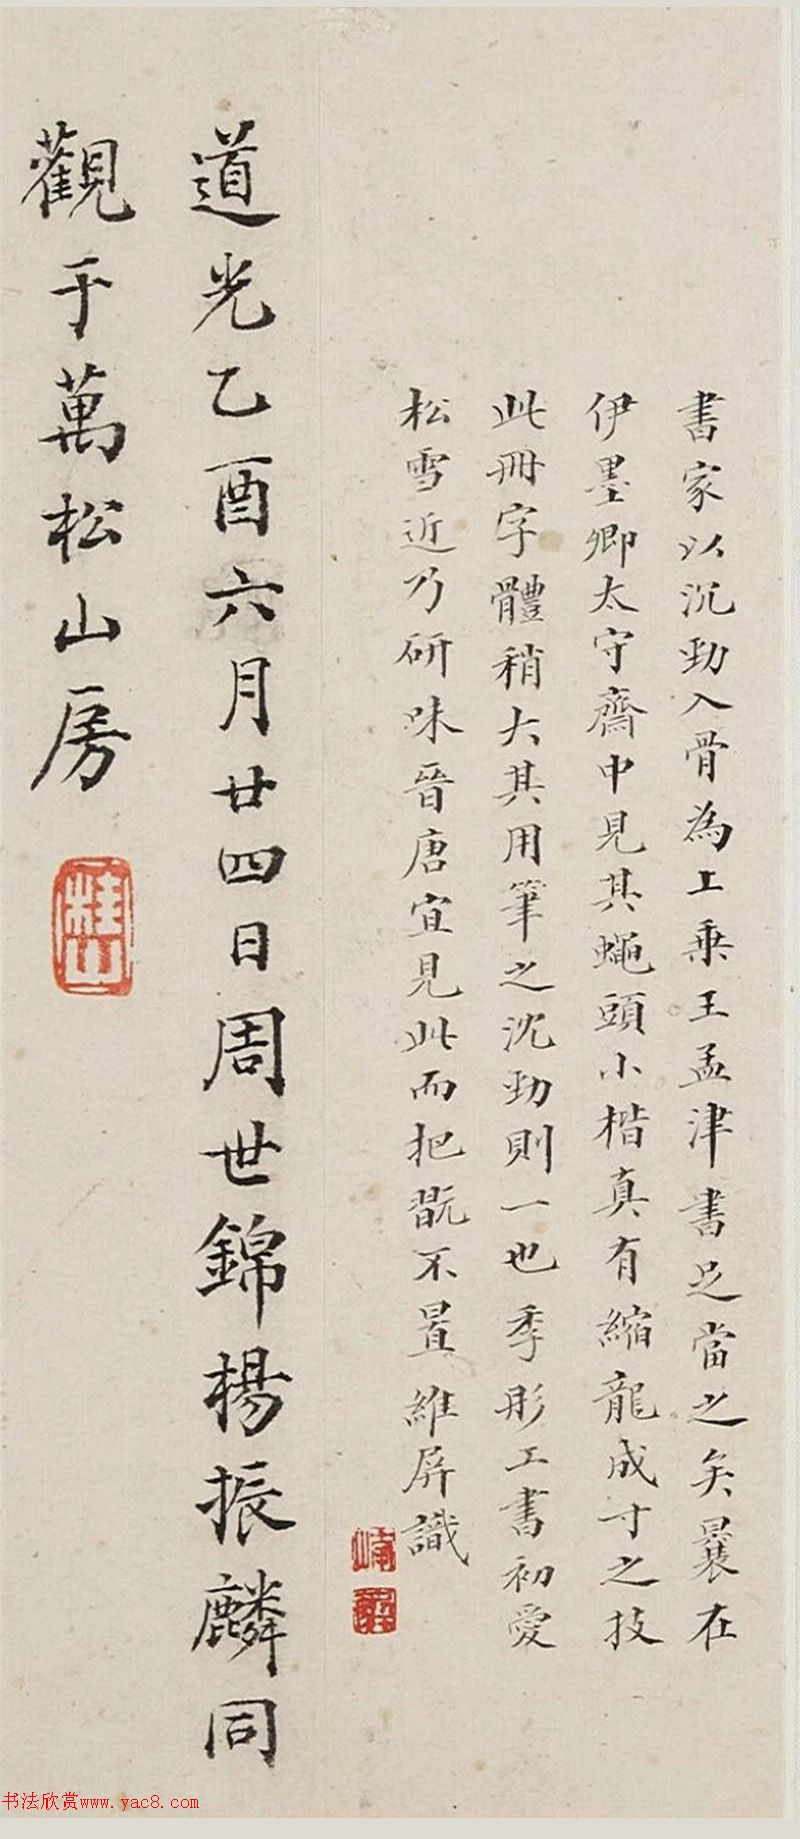 書家以沉勁入骨為上乘王孟津書足當之矣曩在
伊墨卿太守齋中見其蠅頭小楷真有縮龍成寸之技
此冊字體稍大其用筆之沈勁則一也季彤工書初愛
松雪近乃研味晉唐宜見此而把翫不置維屏識
道光乙酉六月廿四日周世錦楊振麟同
觀于萬松山房
书法欣赏www.yac8.com